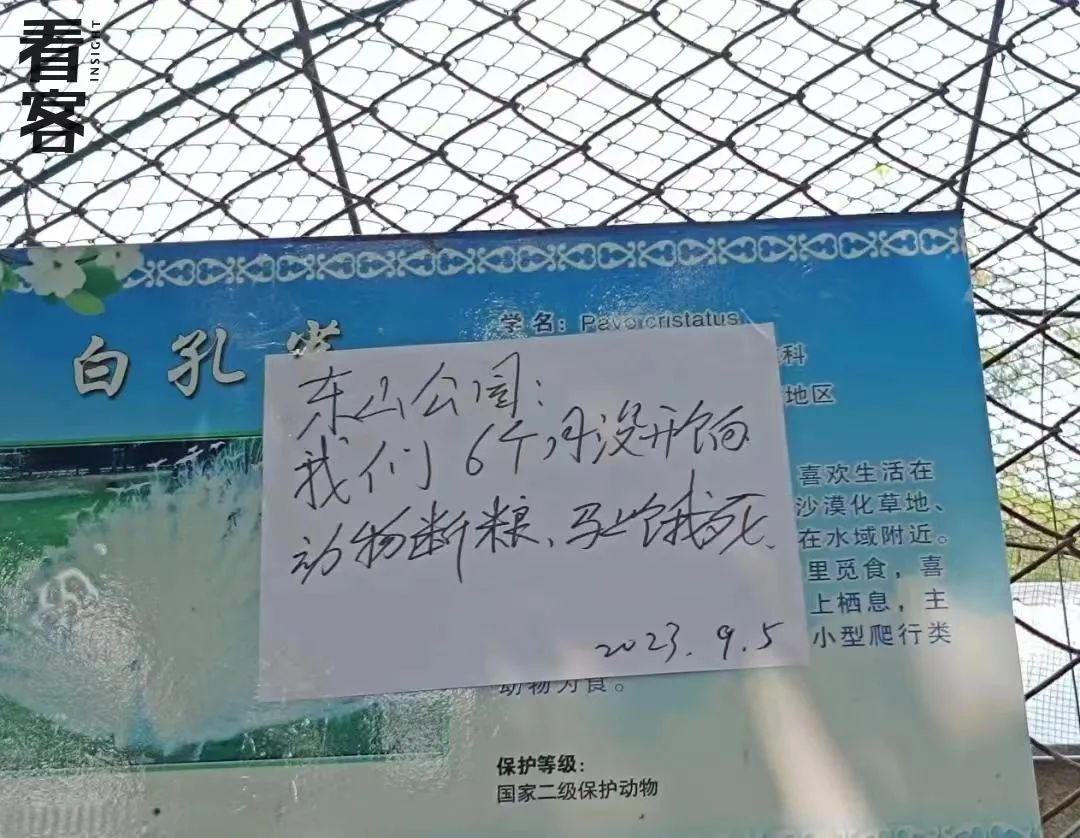 看客
INSIGHT
白孔雀
学名：Pavo cristatus
科
地区
东山公园：
我们6个月没开饷
动物断粮、马上饿死、
2023.9.5
喜欢生活在
沙漠化草地、
在水域附近。
里觅食，喜
上栖息，主
小型爬行类
动物为食。
保护等级：
国家二级保护动物